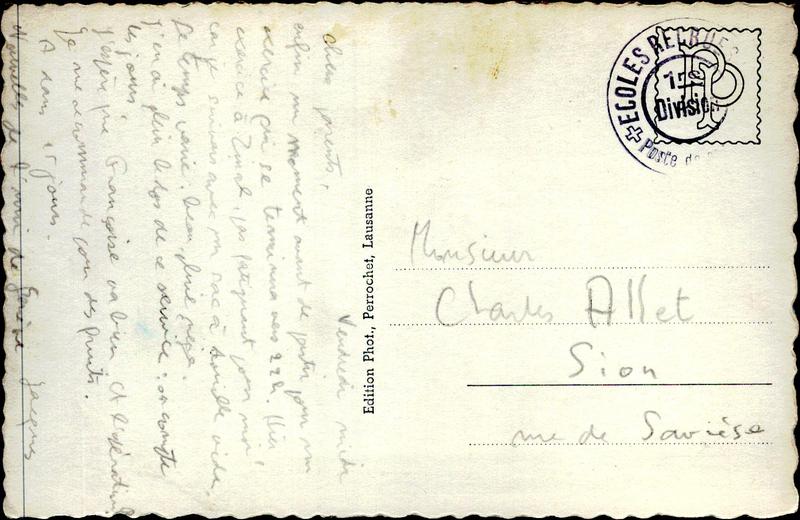 Vendredi midi
Chers parents,
enfin un moment avant de partir pour un
service qui se terminera vers 22h. Hier
exercice à Zinal, pas fatiguant pour moi,
car je suivais avec un sac à bouillie vide.
Le temps varie: beau, pluie, neige.
J'en ai plein le dos de ce service: on compte
les jours.
J'espère que Françoise va bien et l'opération
Je me recommande pour des fruits.
A dans 15 jours.
Jacques
Nouvelles de l'ami de Genève
Edition Phot., Perrochet, Lausanne
ECOLES RECRUES
1re
Division
Poste de
Monsieur
Charles Allet
Sion
rue de Savièse